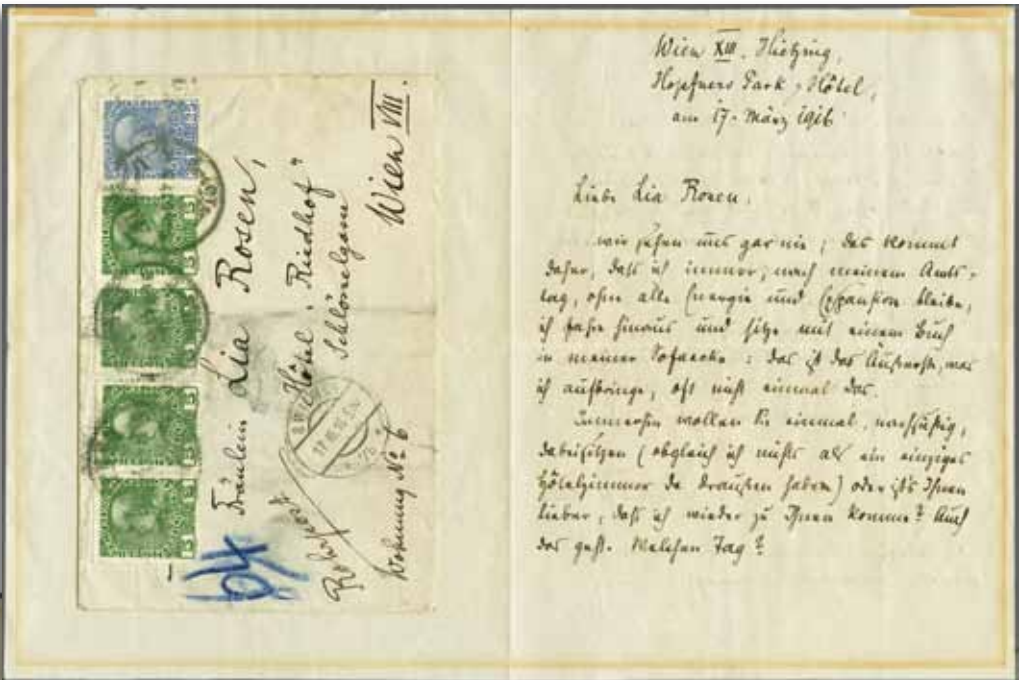 Fräulein Lia Rosen,
Hôtel „Riedhof“
Schlösselgasse
Wien VIII.
Rohrpost
Wohnung № 6
64
5
5
5
5
Wien XIII. Hietzing,
Hopfners Park-Hôtel,
am 17. März 1916
Liebe Lia Rosen,
wir sehen uns gar nie; das kommt
daher, daß ich immer, nach meinem Amts-
tag, ohne alle Energie und Expansion bleibe,
ich fahre hinaus und sitze mit einem Buch
in meiner Sofaecke: das ist das Äußerste, was
ich aufbringe, oft nicht einmal das.
Immerhin wollen Sie einmal, nachsichtig,
dabeisitzen (obgleich ich nichts als ein einziges
Hôtelzimmer da draußen habe) oder ists Ihnen
lieber, daß ich wieder zu Ihnen komme? Auch
das geht. Welchen Tag?